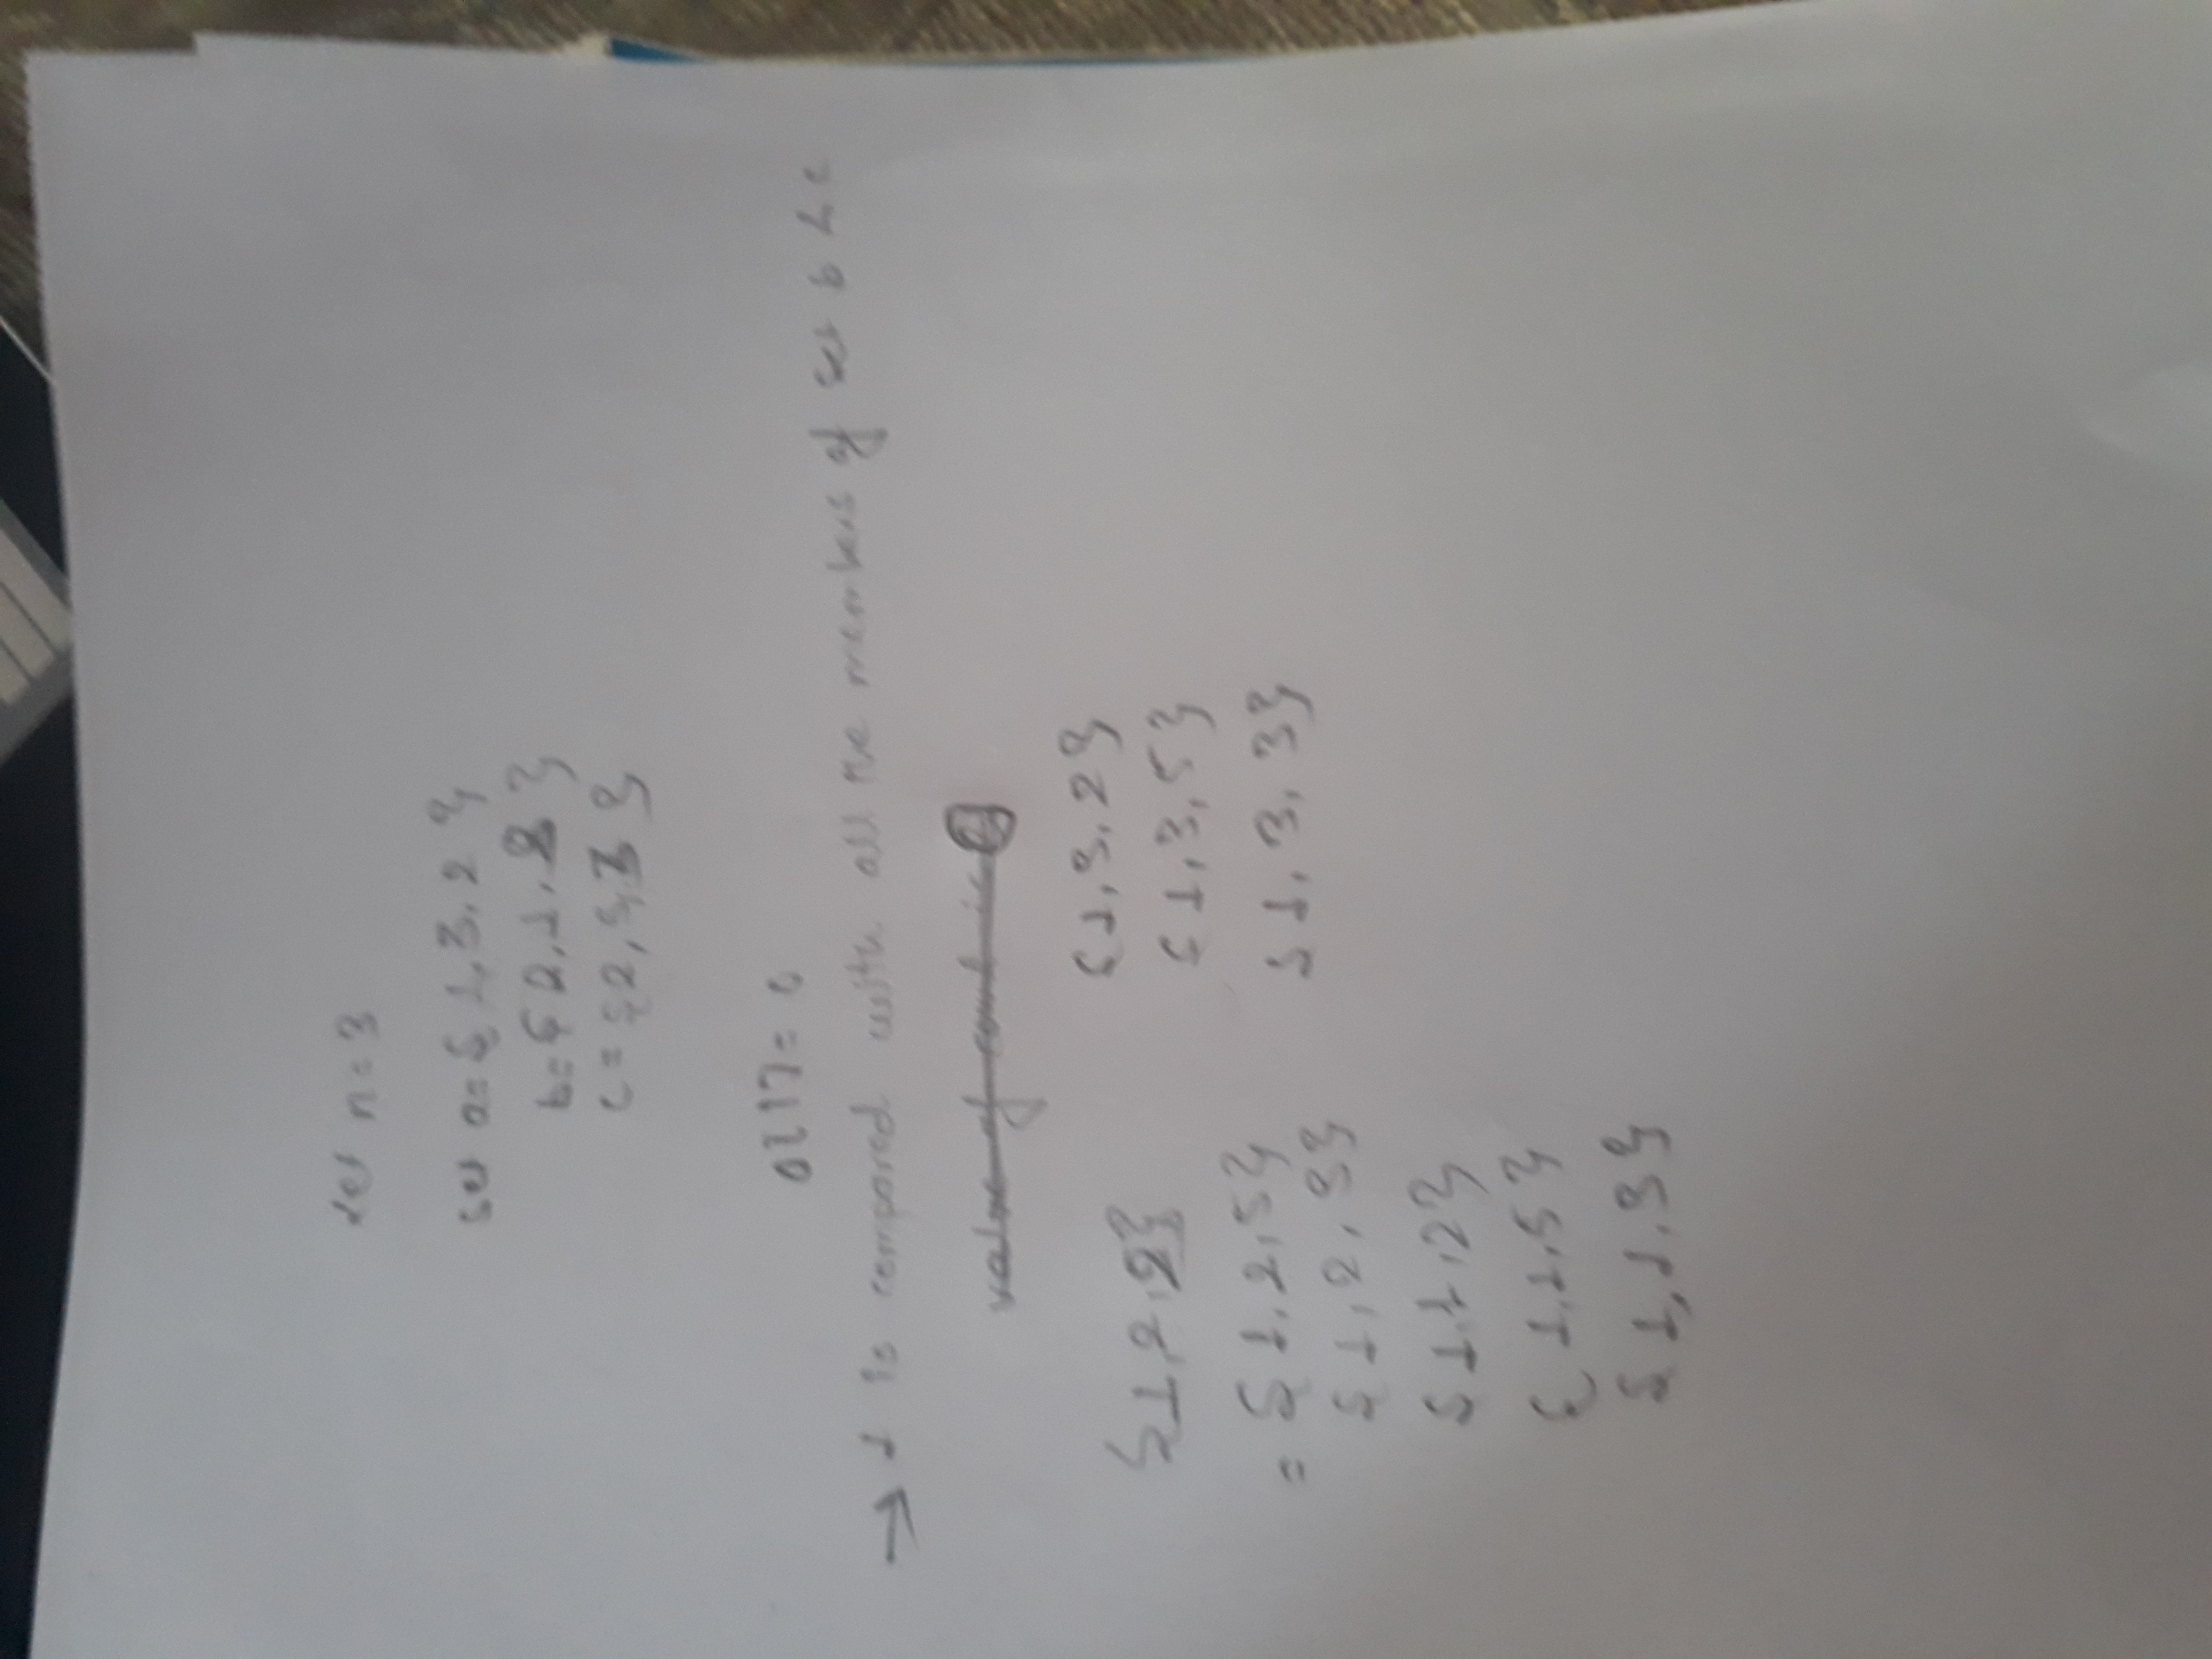 let n=3
set a={1,3,2}
b={2,1,3}
c={2,5,3}
→ 1 is compared with all the members of set b & c
value of count is
{1,2,2}
= {1,2,5}
{1,2,3}
{1,1,2}
{1,1,5}
{1,1,3}
{1,3,2}
{1,3,5}
{1,3,3}